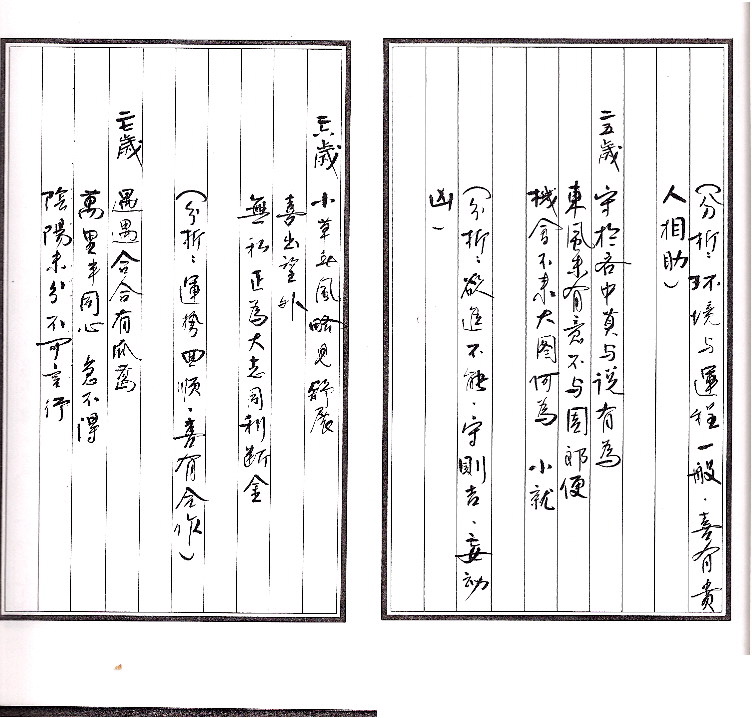 (分析：环境与運程一般．喜有貴
人相助)
二五歲 守於吝中莫与説有為
東風未有意不与周郎便
機會不来大图何為 小就
(分析：欲進不能．守則吉．妄动
凶)
二六歲 小草 風略見舒展
喜出望外
無私正為大志 同利断金
(分析：運势 順．喜有合作)
二七歲 遇遇合合有風
萬里半同心 急不得
陰陽未分不可言